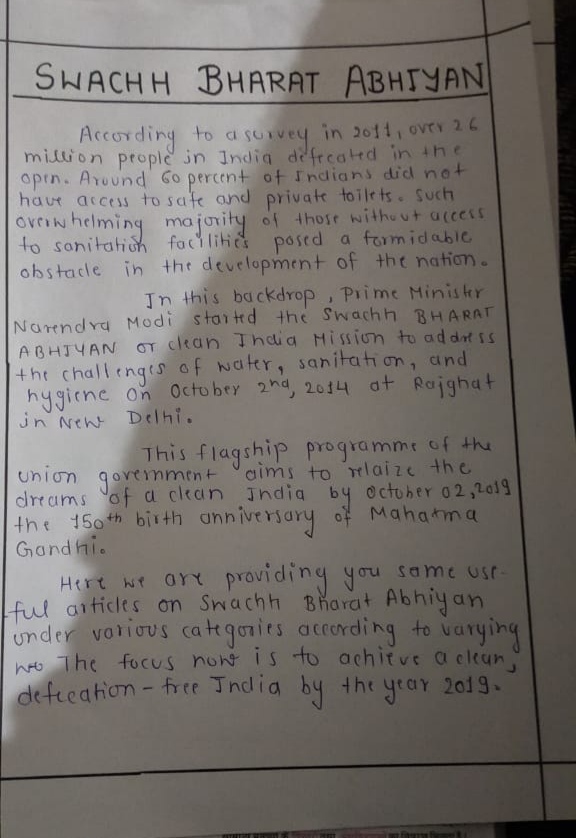 SWACHH BHARAT ABHIYAN
According to a survey in 2011, over 26
million people in India defecated in the
open. Around 60 percent of Indians did not
have access to safe and private toilets. Such
overwhelming majority of those without access
to sanitation facilities posed a formidable
obstacle in the development of the nation.
In this backdrop, Prime Minister
Narendra Modi started the Swachh BHARAT
ABHIYAN or clean India Mission to address
the challenges of water, sanitation, and
hygiene on October 2nd, 2014 at Rajghat
in New Delhi.
This flagship programme of the
union government aims to relaize the
dreams of a clean India by October 02,2019
the 150th birth anniversary of Mahatma
Gandhi.
Here we are providing you some use-
ful articles on Swachh Bharat Abhiyan
under various categories according to varying
The focus now is to achieve a clean,
defecation-free India by the year 2019.